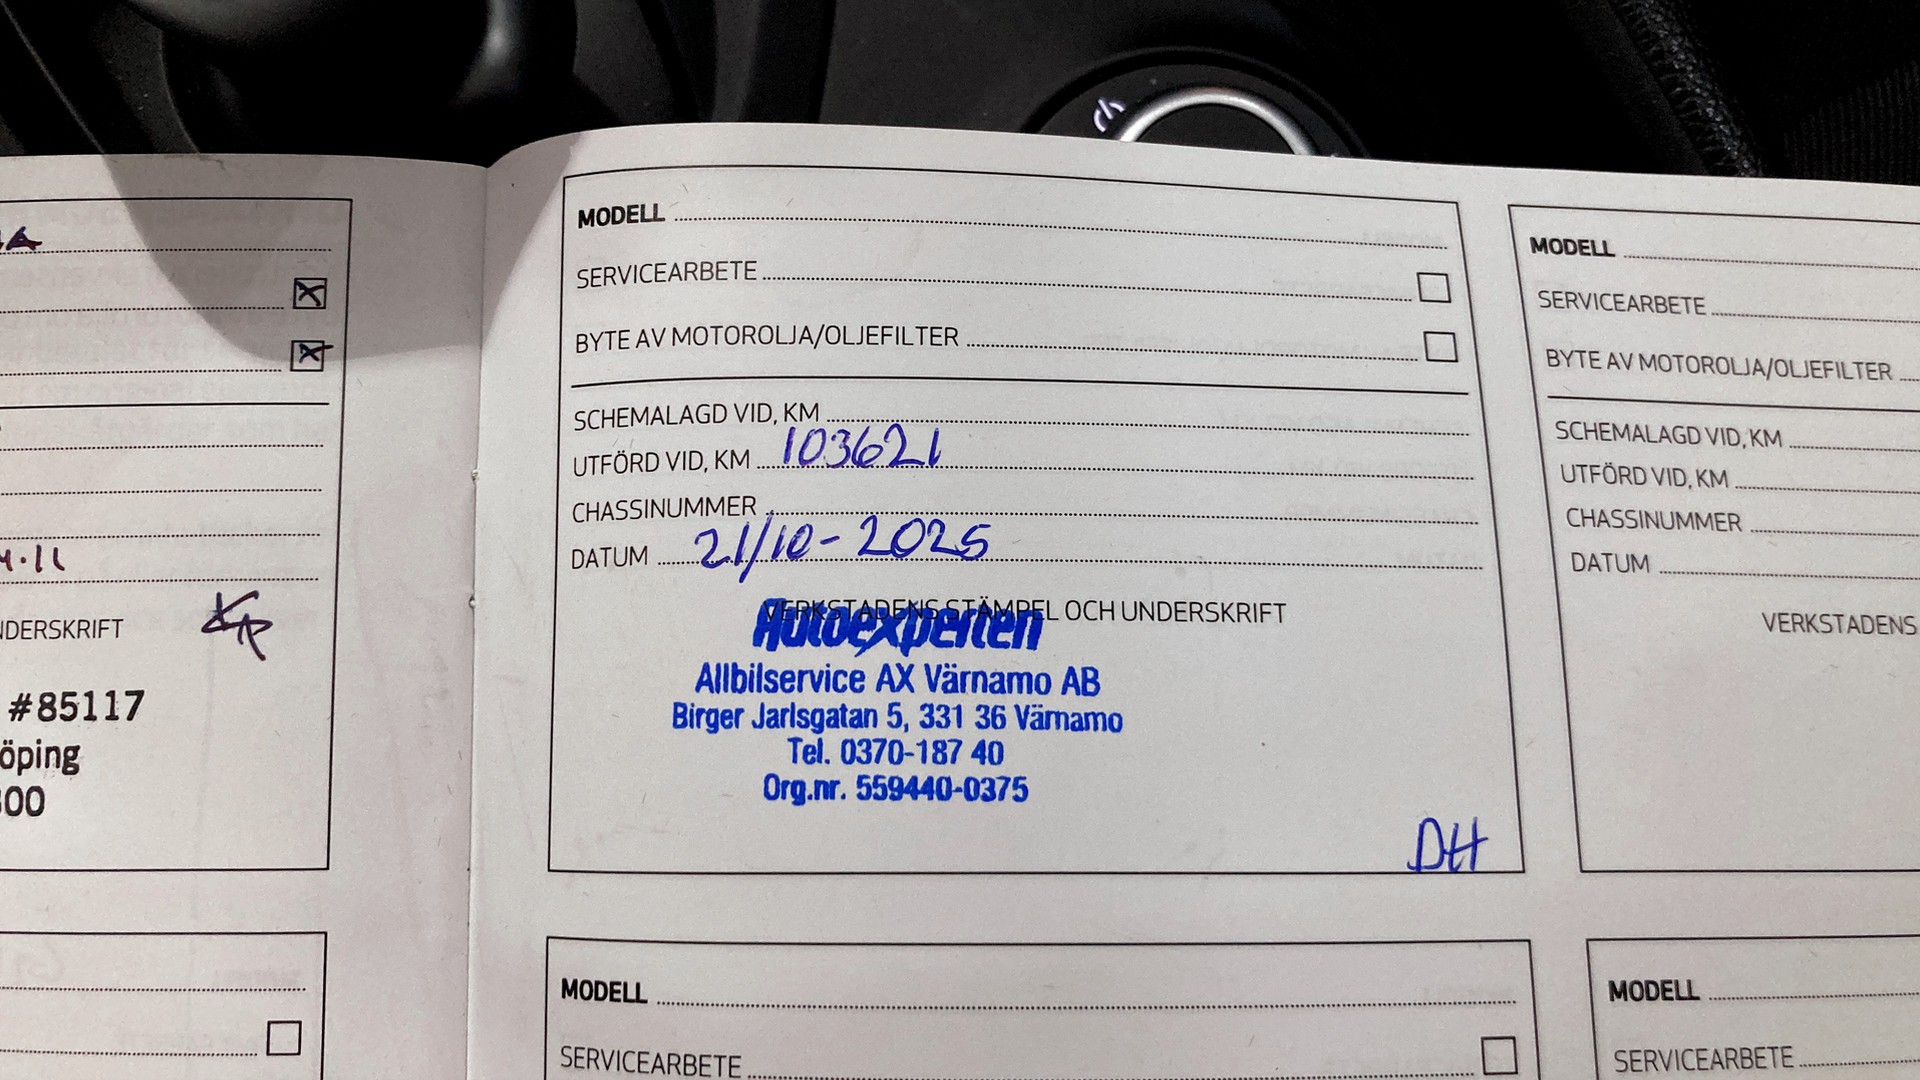 #85117
öping
300
NDERSKRIFT
MODELL
SERVICEARBETE
BYTE AV MOTOROLJA/OLJEFILTER
SCHEMALAGD VID, KM
UTFÖRD VID, KM 103621
CHASSINUMMER
DATUM 21/10-2025
VERKSTADENS STÄMPEL OCH UNDERSKRIFT
Autoexperten
Allbilservice AX Värnamo AB
Birger Jarlsgatan 5, 331 36 Värnamo
Tel. 0370-187 40
Org.nr. 559440-0375
DH
MODELL
SERVICEARBETE
BYTE AV MOTOROLJA/OLJEFILTER
SCHEMALAGD VID, KM
UTFÖRD VID, KM
CHASSINUMMER
DATUM
VERKSTADENS
MODELL
SERVICEARBETE
MODELL
SERVICEARBETE